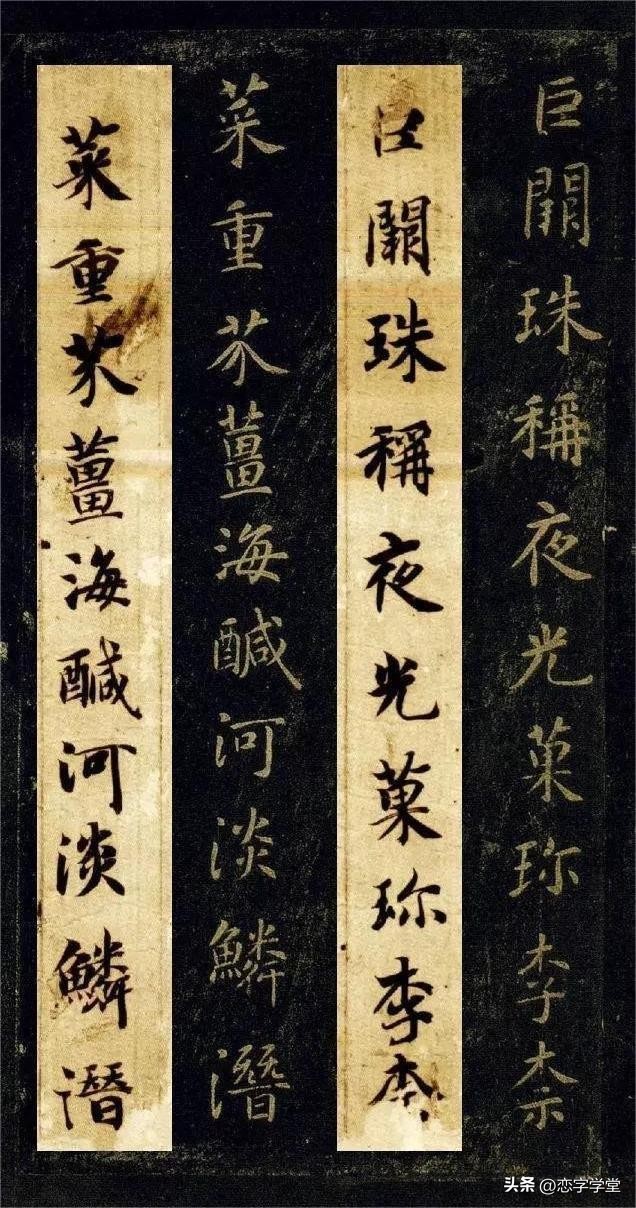 巨闕珠稱夜光菓珎李柰
巨闕珠稱夜光菓珎李柰
菜重芥薑海醎河淡鱗潛
菜重芥薑海醎河淡鱗潛
头条 @恋字学堂